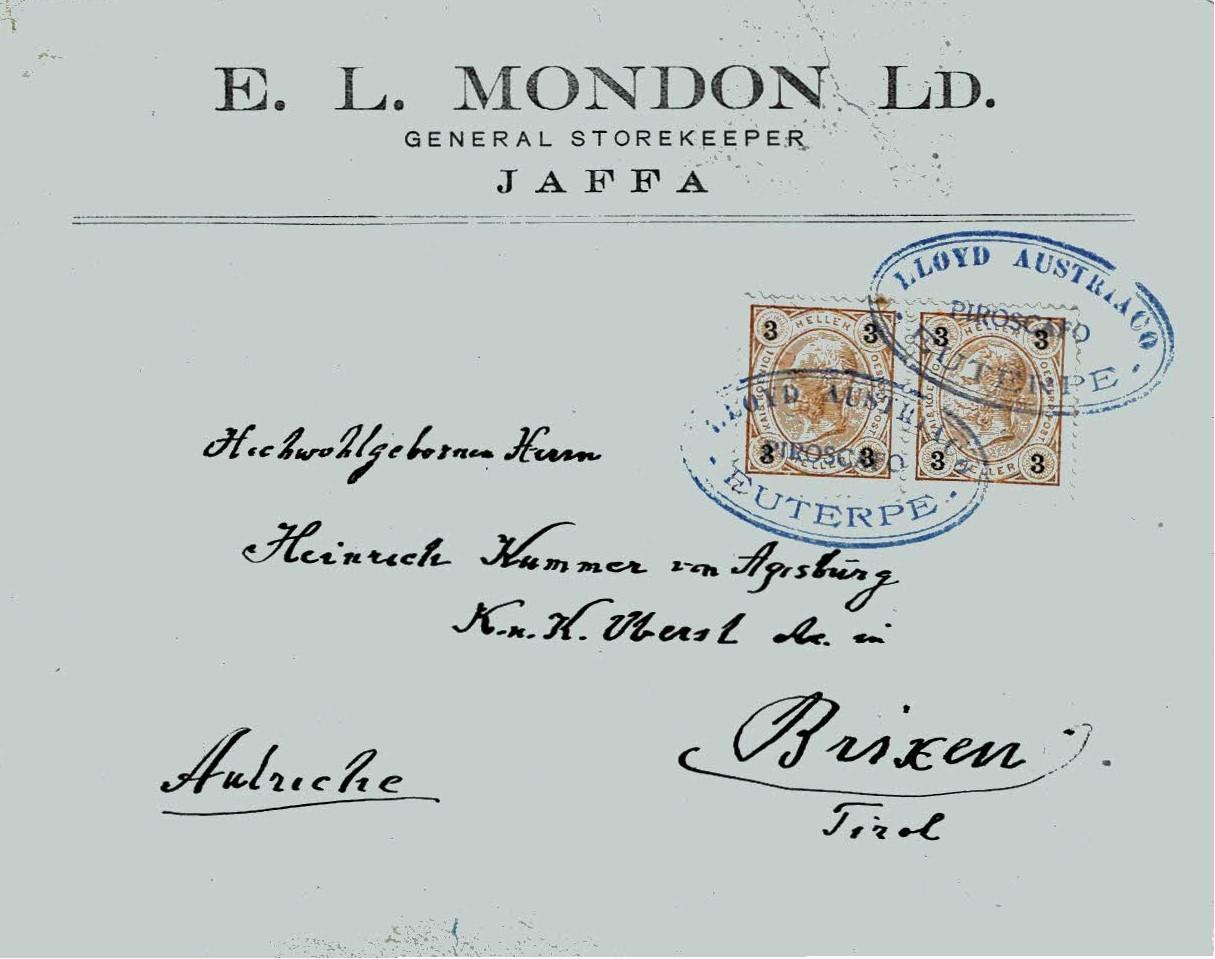 E. L. MONDON LD.
GENERAL STOREKEEPER
JAFFA
LLOYD AUSTRIACO
PIROSCAFO
EUTERPE
3 HELLER 3
3 HELLER 3
3 HELLER 3
3 HELLER 3
LLOYD AUSTRIACO
PIROSCAFO
EUTERPE
Hochwohlgebornen Herrn
Heinrich Kummer von
K. u. K. Oberst &c. in
Brixen
Tirol
Autriche